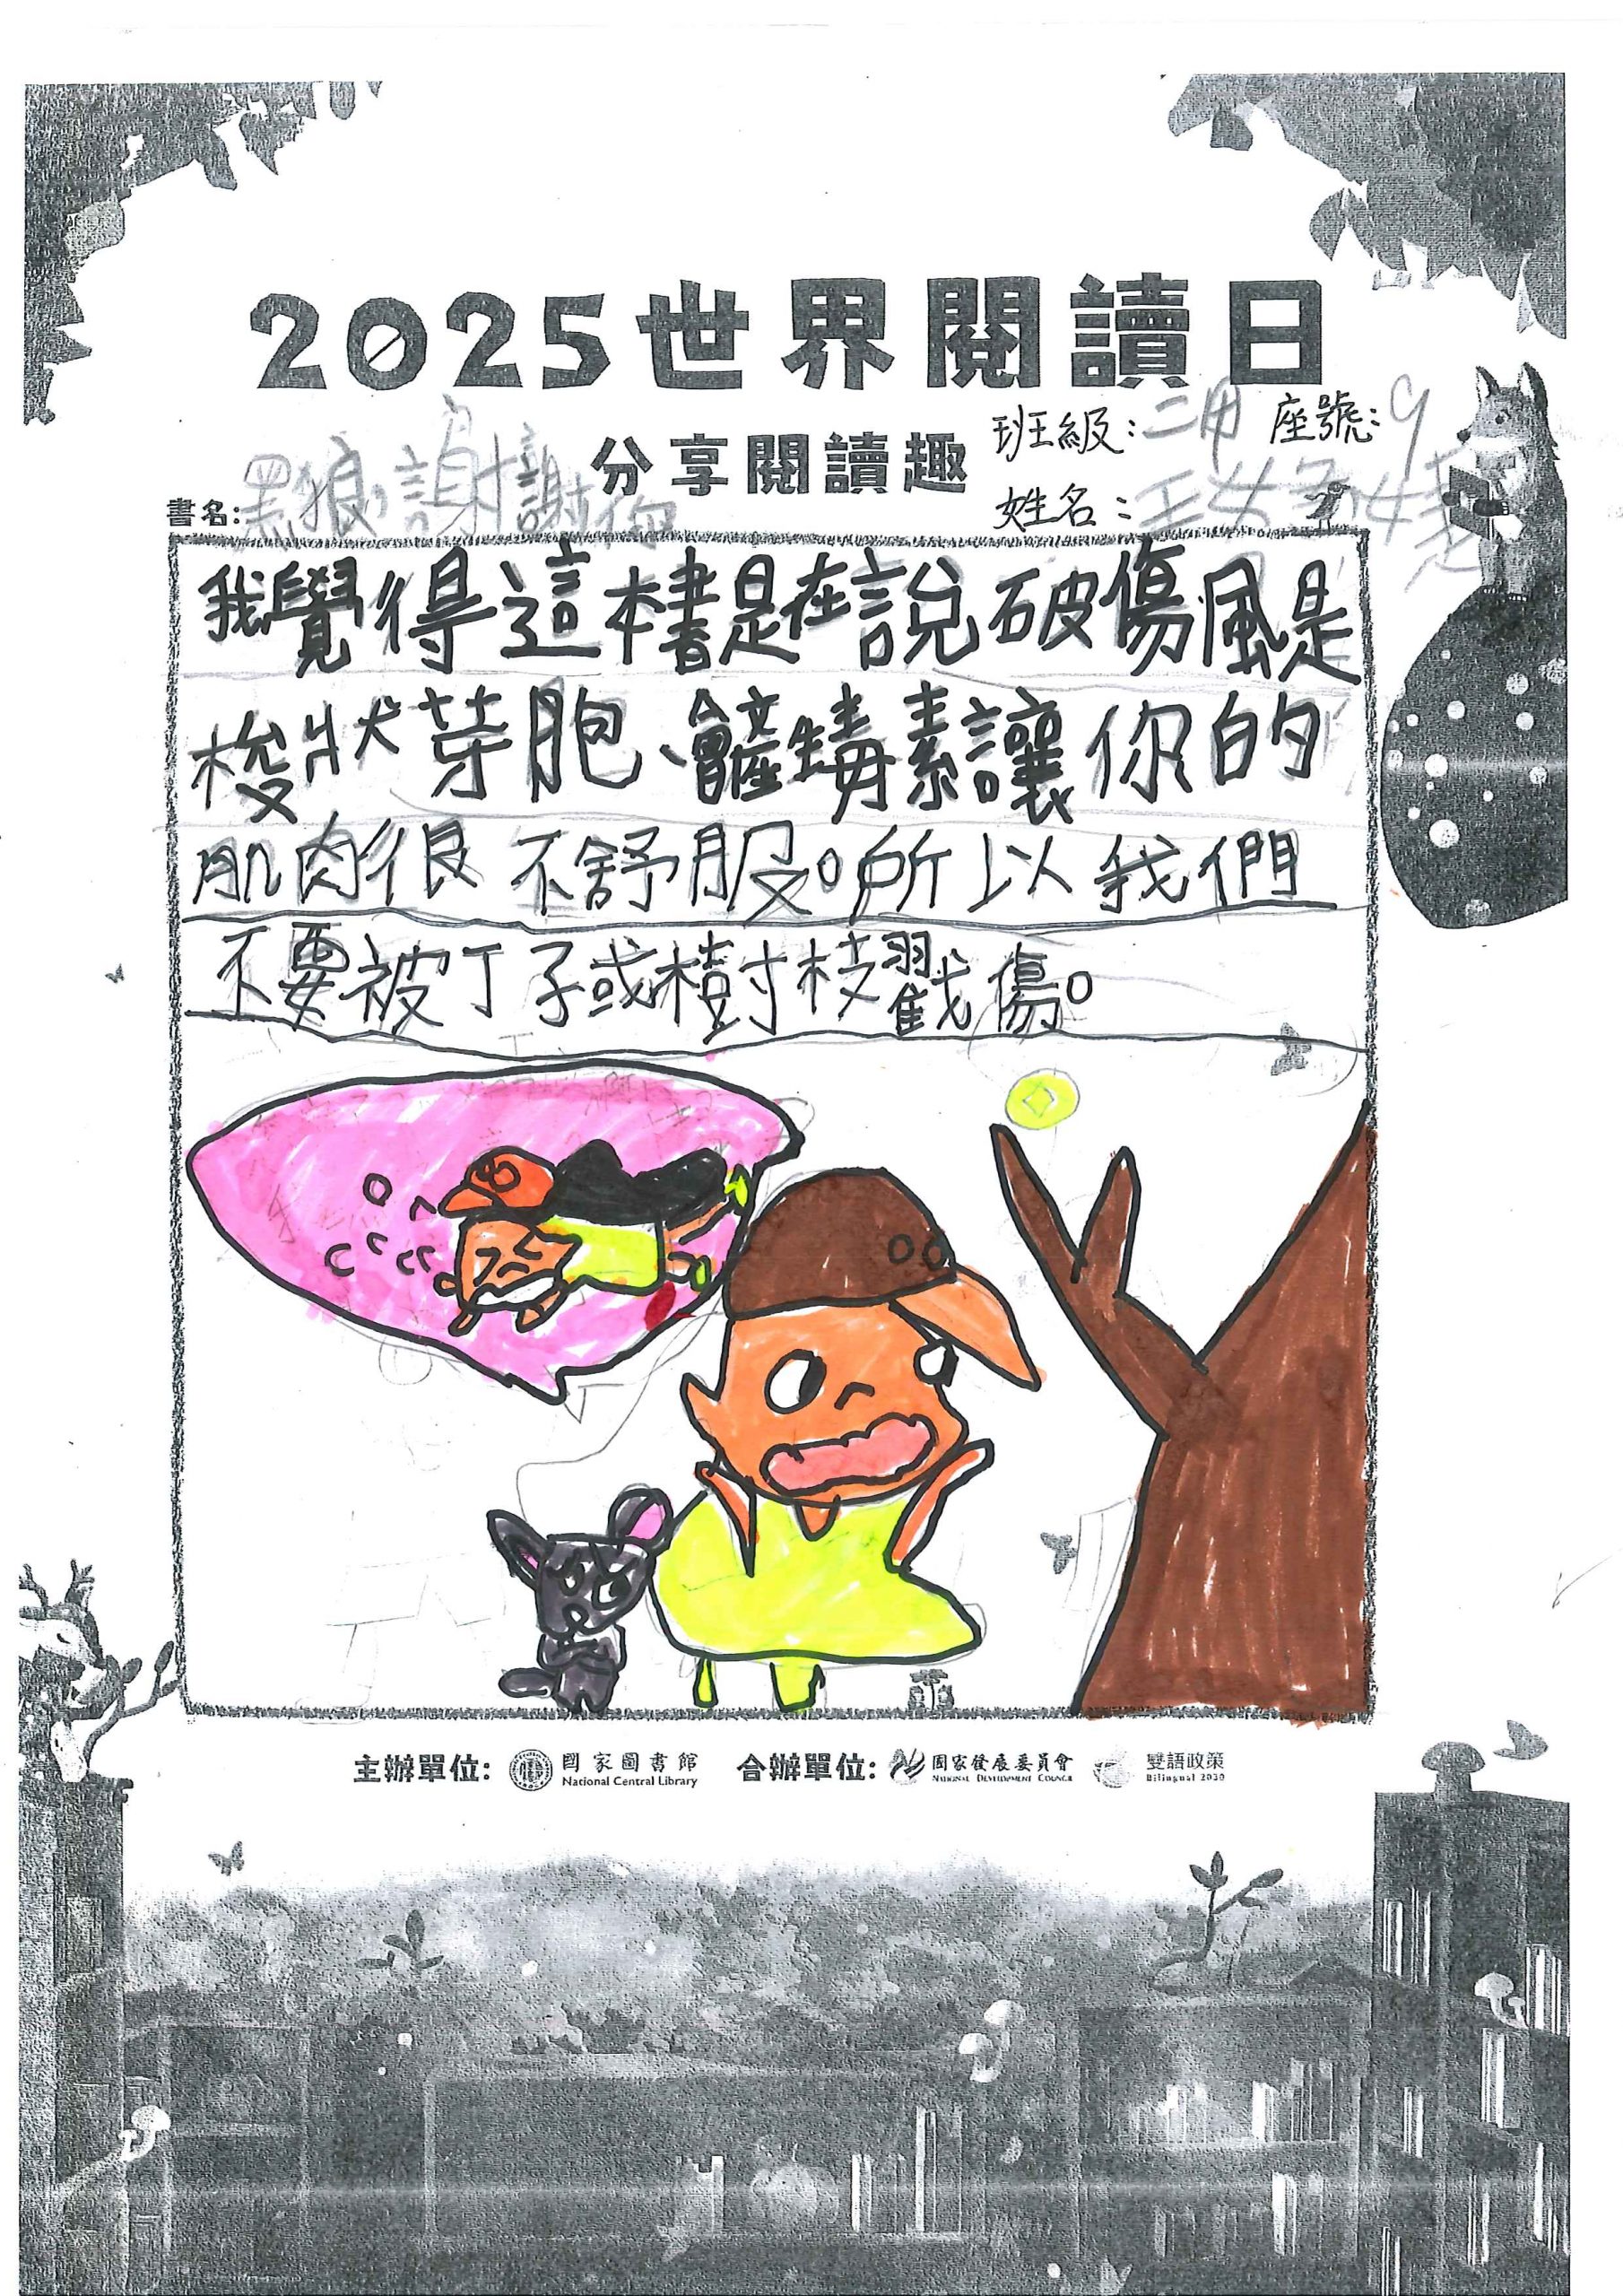 2025世界閱讀日
分享閱讀趣
班級:二甲 座號:9
書名:黑狼,謝謝你
姓名:王
我覺得這本書是在說破傷風是
梭狀芽胞、會產生毒素讓你的
肌肉很不舒服。所以我們
不要被丁子或樹枝戳傷。
主辦單位: 國家圖書館 National Central Library 合辦單位: 國家發展委員會 NATIONAL DEVELOPMENT COUNCIL 雙語政策 Bilingual 2030